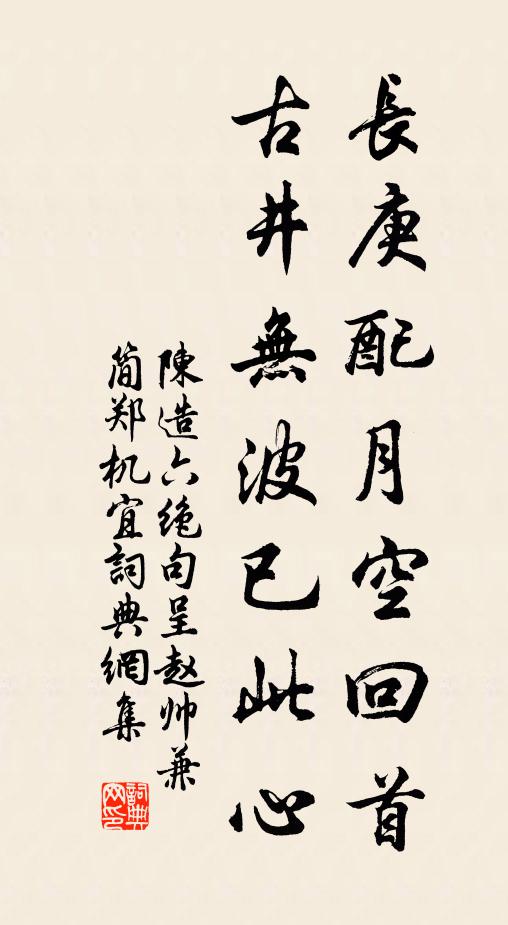 長庚配月空回首
古井無波已此心
陳造六绝句呈赵帅兼
简郑机宜詞典網集
詞典网印